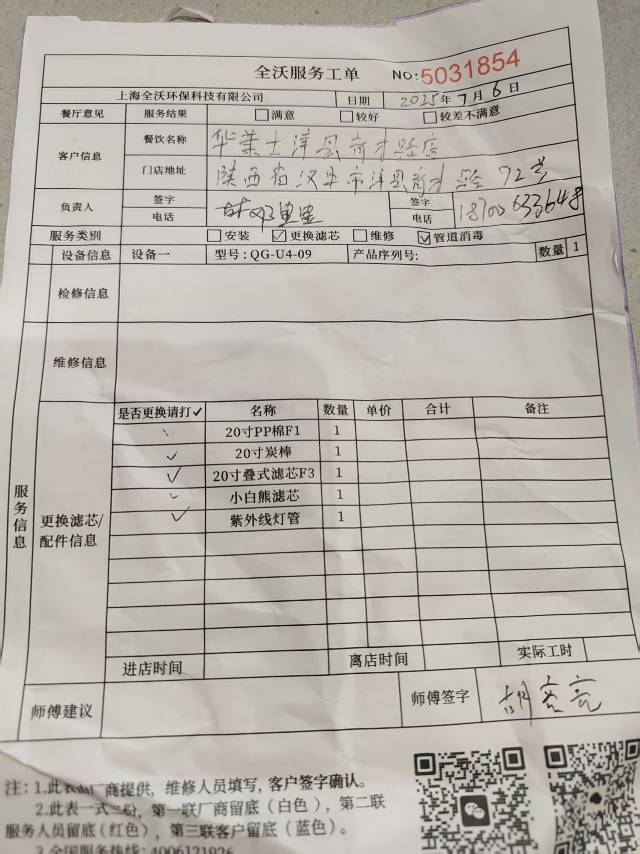 全沃服务工单 NO:5031854
上海全沃环保科技有限公司 日期 2025年7月6日
餐厅意见 服务结果 □满意 □较好 □较差不满意
客户信息 餐饮名称 华莱士洋县育才路店
门店地址 陕西省汉中市洋县育才路 92号
负责人 签字 签字
电话 电话 18700633648
服务类别 □安装 ☑更换滤芯 □维修 ☑管道消毒
设备信息 设备一 型号:QG-U4-09 产品序列号: 数量 1
检修信息
维修信息
服务信息
更换滤芯/
配件信息
是否更换请打✓ 名称 数量 单价 合计 备注
✓ 20寸PP棉F1 1
✓ 20寸炭棒 1
✓ 20寸叠式滤芯F3 1
✓ 小白熊滤芯 1
✓ 紫外线灯管 1
进店时间 离店时间 实际工时
师傅建议 师傅签字 胡亮亮
注:1.此表由厂商提供,维修人员填写,客户签字确认。
2.此表一式三份,第一联厂商留底(白色),第二联
服务人员留底(红色),第三联客户留底(蓝色)。
3.全国服务热线:4006121926